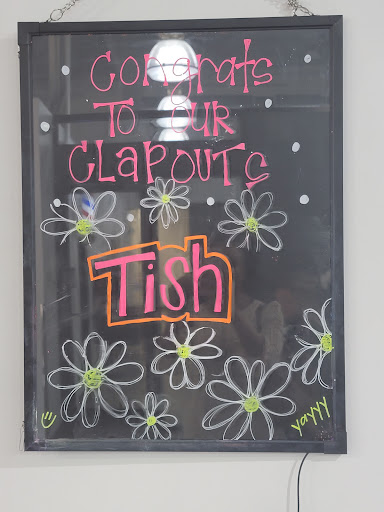 Congrats
TO OUR
CLAPOUTS
Tish
yayyy